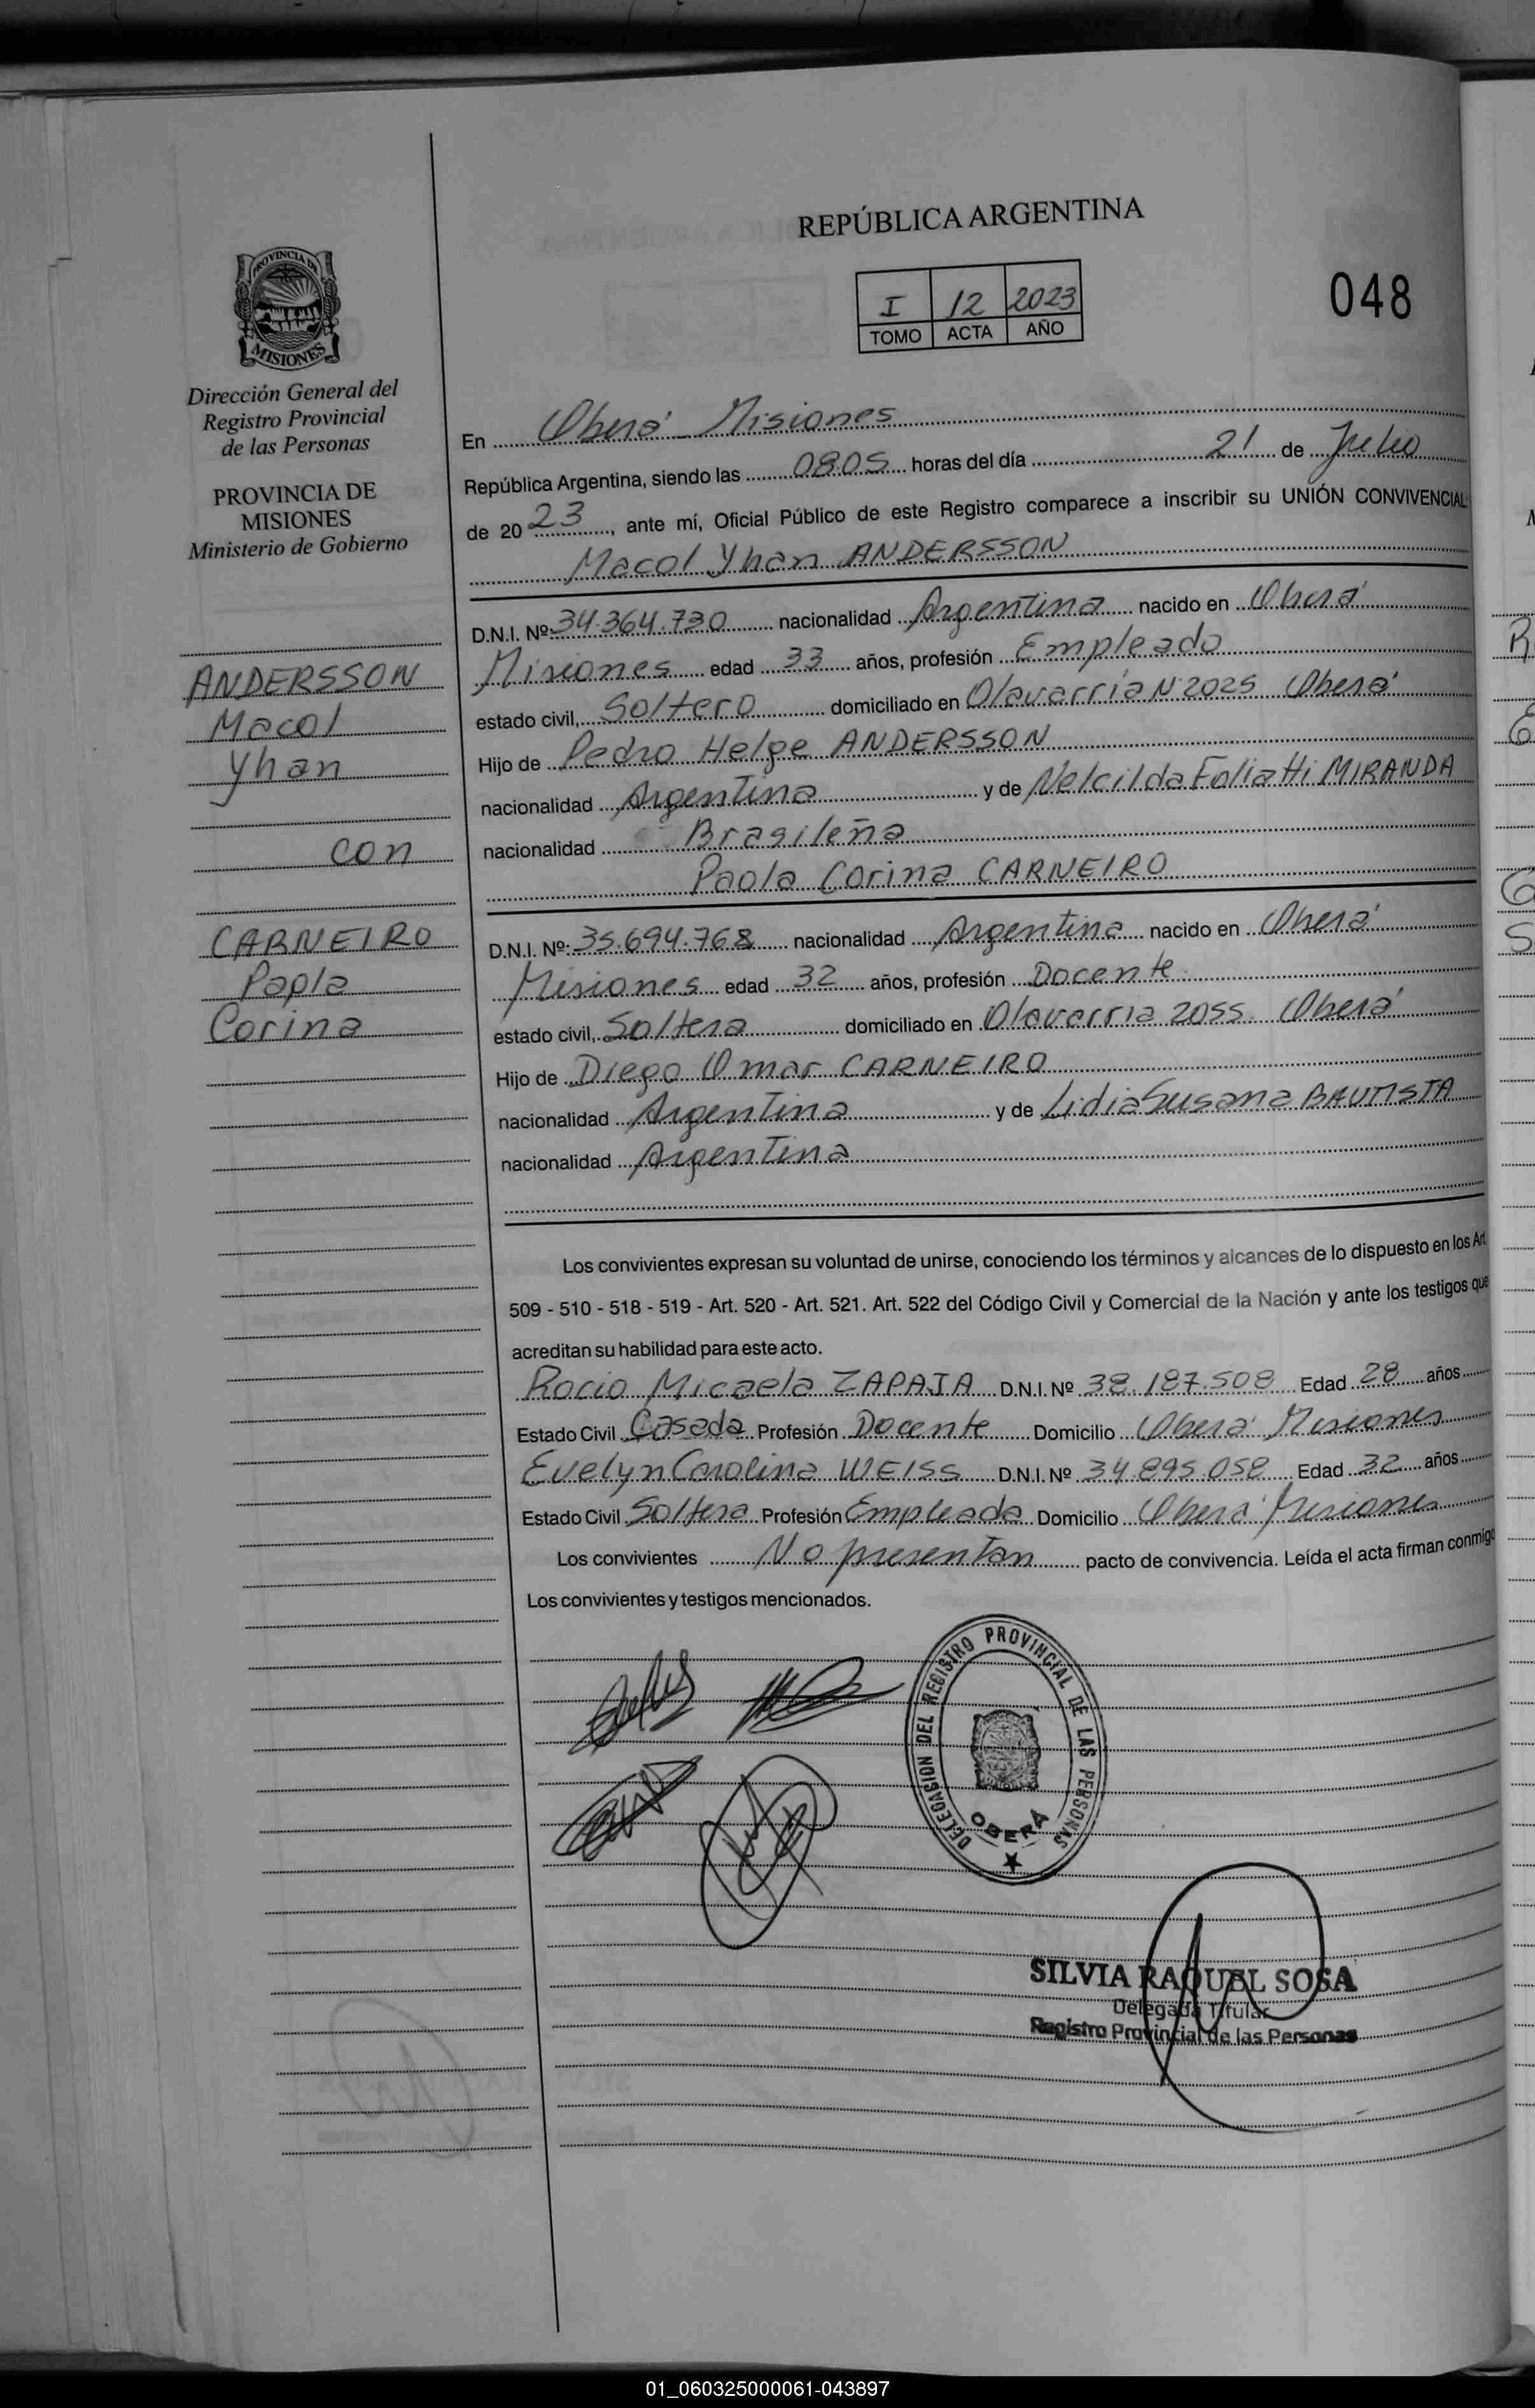 REPÚBLICA ARGENTINA
I 12 2023
TOMO ACTA AÑO
048
PROVINCIA DE
MISIONES
Dirección General del
Registro Provincial
de las Personas
PROVINCIA DE
MISIONES
Ministerio de Gobierno
ANDERSSON
Macol
Yhan
con
CARNEIRO
Paola
Corina
En Oberá Misiones
República Argentina, siendo las 0805 horas del día 21 de Julio
de 2023, ante mí, Oficial Público de este Registro comparece a inscribir su UNIÓN CONVIVENCIAL
Macol Yhan ANDERSSON
D.N.I. Nº 34.364.730 nacionalidad Argentina nacido en Oberá
Misiones edad 33 años, profesión Empleado
estado civil, Soltero domiciliado en Olavarría Nº 2025 Oberá
Hijo de Pedro Helge ANDERSSON
nacionalidad Argentina y de Nelcilda Foliatti MIRANDA
nacionalidad Brasileña
Paola Corina CARNEIRO
D.N.I. Nº: 35.694.768 nacionalidad Argentina nacido en Oberá
Misiones edad 32 años, profesión Docente
estado civil, Soltera domiciliado en Olavarria 2055 Oberá
Hijo de Diego Omar CARNEIRO
nacionalidad Argentina y de Lidia Susana BAUTISTA
nacionalidad Argentina
Los convivientes expresan su voluntad de unirse, conociendo los términos y alcances de lo dispuesto en los Art.
509 - 510 - 518 - 519 - Art. 520 - Art. 521. Art. 522 del Código Civil y Comercial de la Nación y ante los testigos que
acreditan su habilidad para este acto.
Rocio Micaela ZAPAJA D.N.I. Nº 38.187.508 Edad 28 años
Estado Civil Casada Profesión Docente Domicilio Oberá Misiones
Evelyn Carolina WEISS D.N.I. Nº 34.895.058 Edad 32 años
Estado Civil Soltera Profesión Empleada Domicilio Oberá Misiones
Los convivientes No presentan pacto de convivencia. Leída el acta firman conmigo
Los convivientes y testigos mencionados.
DELEGACION DEL REGISTRO PROVINCIAL DE LAS PERSONAS
OBERÁ
SILVIA RAQUEL SOSA
Delegada Titular
Registro Provincial de las Personas
01_060325000061-043897